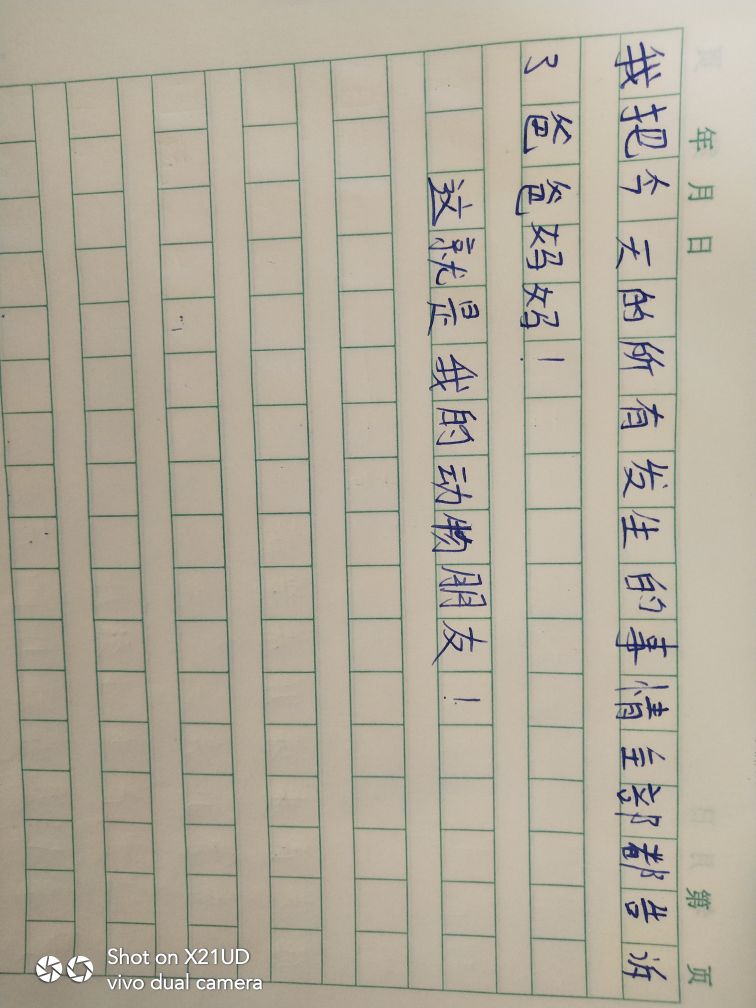 年 月 日 第 页
我把今天的所有发生的事情全部都告诉
了爸爸妈妈!
这就是我的动物朋友!
Shot on X21UD
vivo dual camera